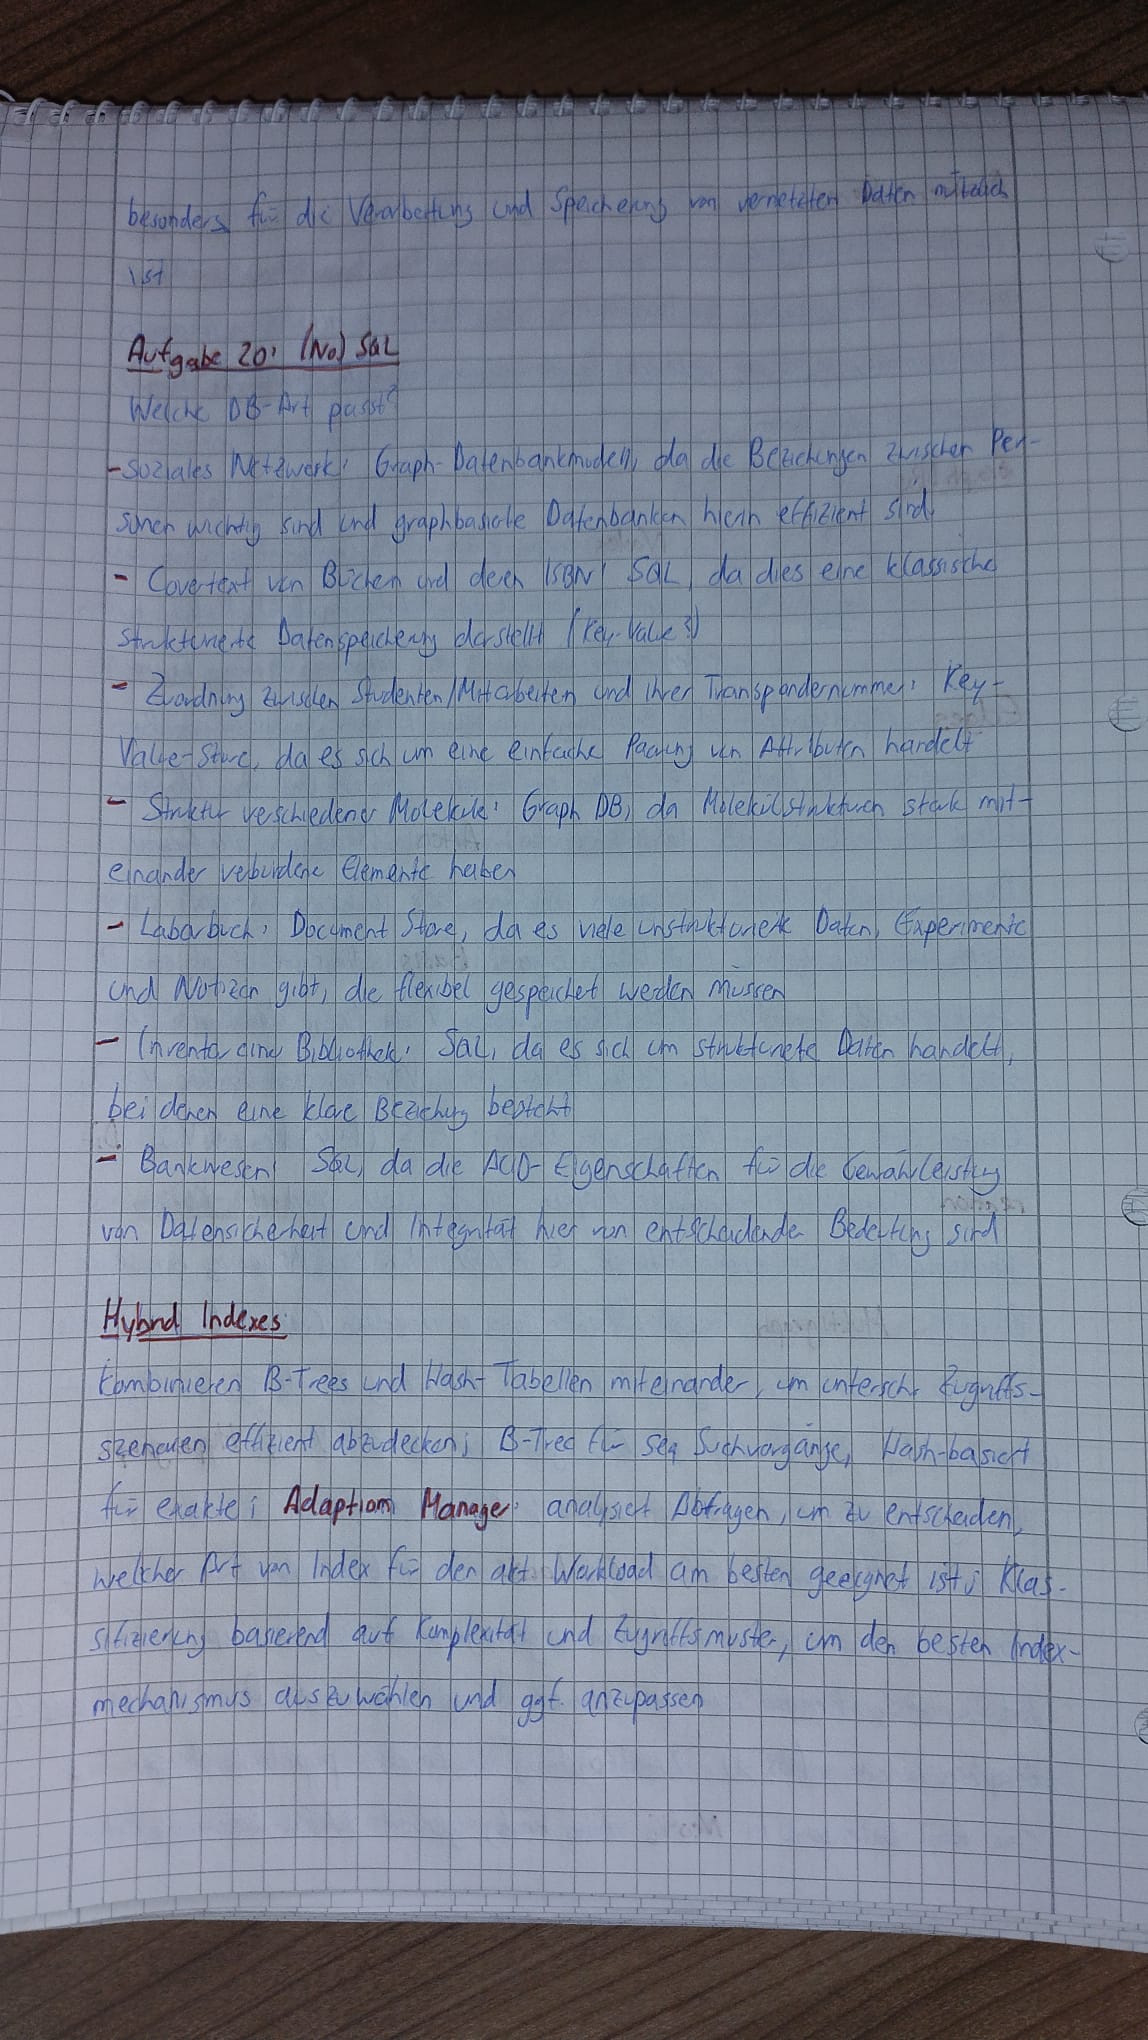 besonders für die Verarbeitung und Speicherung von vernetzten Daten nützlich
ist
Aufgabe 20: (No) SQL
Welche DB-Art passt?
- soziales Netzwerk: Graph-Datenbankmodell, da die Beziehungen zwischen Per-
sonen wichtig sind und graphbasierte Datenbanken hierin effizient sind
- Covertext von Büchern und deren ISBN: SQL, da dies eine klassische
strukturierte Datenspeicherung darstellt (Key-Value?)
- Zuordnung zwischen Studenten/Mitarbeitern und ihrer Transpondernummer: Key-
Value-Store, da es sich um eine einfache Paarung von Attributen handelt
- Struktur verschiedener Moleküle: Graph DB, da Molekülstrukturen stark mit-
einander verbundene Elemente haben
- Laborbuch: Document Store, da es viele unstrukturierte Daten, Experimente
und Notizen gibt, die flexibel gespeichert werden müssen
- Inventar einer Bibliothek: SQL, da es sich um strukturierte Daten handelt,
bei denen eine klare Beziehung besteht
- Bankwesen: SQL, da die ACID-Eigenschaften für die Gewährleistung
von Datensicherheit und Integrität hier von entscheidender Bedeutung sind
Hybrid Indexes:
Kombinieren B-Trees und Hash-Tabellen miteinander, um untersch. Zugriffs-
szenarien effizient abzudecken; B-Tree für seq Suchvorgänge, Hash-basiert
für exakte; Adaption Manager: analysiert Abfragen, um zu entscheiden,
welcher Art von Index für den akt. Workload am besten geeignet ist; Klas-
sifizierung basierend auf Komplexität und Zugriffsmuster, um den besten Index-
mechanismus auszuwählen und ggf. anzupassen